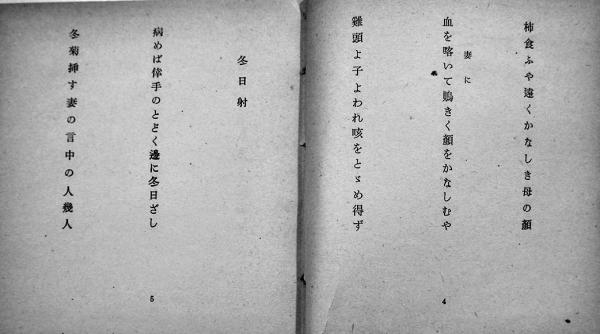 柿食ふや遠くかなしき母の顔
妻に
血を喀いて鵙きく顔をかなしむや
雞頭よ子よわれ咳をとゞめ得ず
4
冬日射
病めば倖手のとどく邊に冬日ざし
冬菊挿す妻の言中の人幾人
5